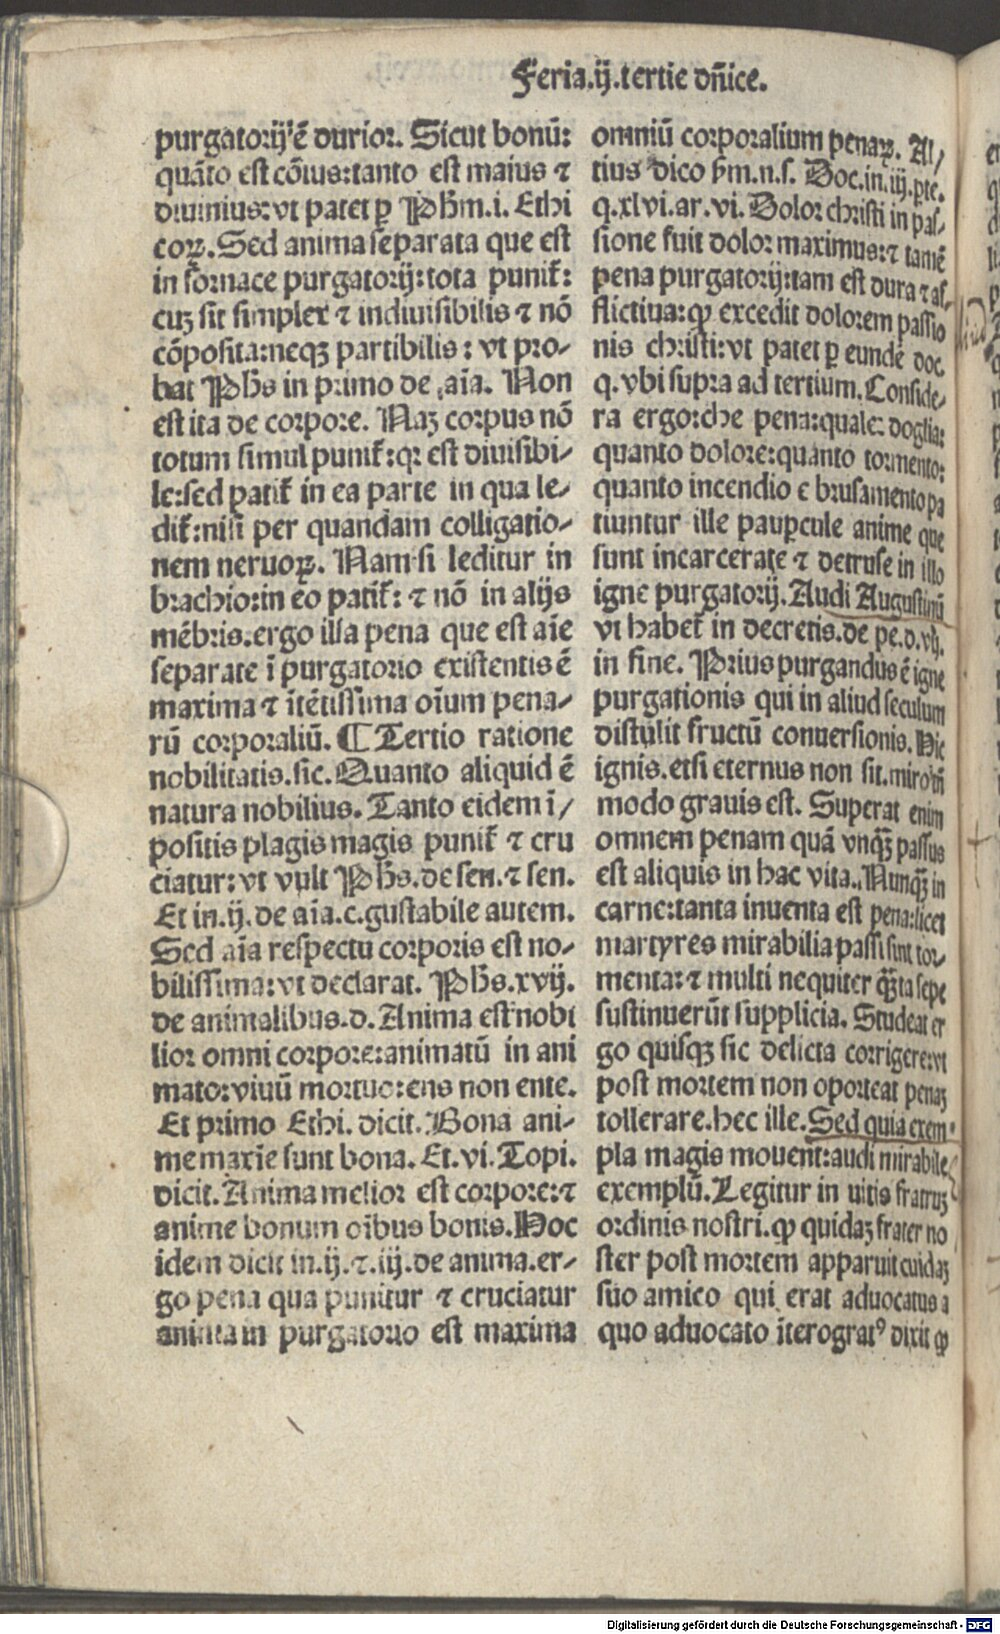 Feria.ij.tertie dñice.
purgatorij ẽ durior. Sicut bonũ:
quãto est cõius:tanto est maius ⁊
diuinius:vt patet ꝑ Phm̃.i. Ethi
coꝝ. Sed anima separata que est
in fornace purgatorij:tota punit̃:
cuꝫ sit simplex ⁊ indiuisibilis ⁊ nõ
cõposita:neqꝫ partibilis: vt pro-
bat Phs̃ in primo de aĩa. Non
est ita de corpore. Naꝫ corpus nõ
totum simul punit̃:qꝛ est diuisibi-
le:sed patit̃ in ea parte in qua le-
dit̃:nisi per quandam colligatio-
nem neruoꝝ. Nam si leditur in
brachio:in eo patit̃: ⁊ nõ in alijs
mẽbris.ergo illa pena que est aĩe
separate ĩ purgatorio existentis ẽ
maxima ⁊ ĩtẽtissima oĩum pena-
rũ corporaliũ. ¶ Tertio ratione
nobilitatis.sic. Quanto aliquid ẽ
natura nobilius. Tanto eidem ĩ/
positis plagis magis punit̃ ⁊ cru
ciatur: vt vult Phs̃. de sen. ⁊ sen.
Et in.ij. de aĩa.c.gustabile autem.
Sed aĩa respectu corporis est no-
bilissima: vt declarat. Phs̃.xvij.
de animalibus.d. Anima est nobi
lior omni corpore:animatũ in ani
mato:viuũ mortuo:ens non ente.
Et primo Ethi. dicit. Bona ani-
me maxĩe sunt bona. Et.vi. Topi.
dicit. Anima melior est corpore:⁊
anime bonum oĩbus bonis. Hoc
idem dicit in.ij.⁊.iij.de anima.er-
go pena qua punitur ⁊ cruciatur
anima in purgatorio est maxima
omniũ corporalium penaꝝ. Al/
tius dico ẽm.n.s. Doc.in.iij.ꝑte.
q.xlvi.ar.vi. Dolor christi in pas-
sione fuit dolor maximus:⁊ tamẽ
pena purgatorij:tam est dura ⁊ af-
flictiua:ꝙ excedit dolorem passio
nis christi: vt patet ꝑ eundẽ doc.
q.vbi supra ad tertium. Conside-
ra ergo:che pena:quale: doglia:
quanto dolore:quanto tormento:
quanto incendio e brusamento pa
tiuntur ille pauꝑcule anime que
sunt incarcerate ⁊ detruse in illo
igne purgatorij. Audi Augustinũ
vt habet̃ in decretis.de pe.d.vij.
in fine. Prius purgandus ẽ igne
purgationis qui in aliud seculum
distulit fructũ conuersionis. Hic
ignis.etsi eternus non sit.miro tñ
modo grauis est. Superat enim
omnem penam quã vnqꝫ passus
est aliquis in hac vita. Nunqꝫ in
carne:tanta inuenta est pena:licet
martyres mirabilia passi sunt tor-
menta:⁊ multi nequiter qꝫta sepe
sustinuerũt supplicia. Studeat er
go quisqꝫ sic delicta corrigere:vt
post mortem non oporteat penaꝫ
tollerare.hec ille. Sed quia exem
pla magis mouent̃:audi mirabile
exemplũ. Legitur in uitis fratruꝫ
ordinis nostri.ꝙ quidaꝫ frater no
ster post mortem apparuit cuidaꝫ
suo amico qui erat aduocatus a
quo aduocato ĩterogratꝰ dixit ꝙ
Digitalisierung gefördert durch die Deutsche Forschungsgemeinschaft - DFG